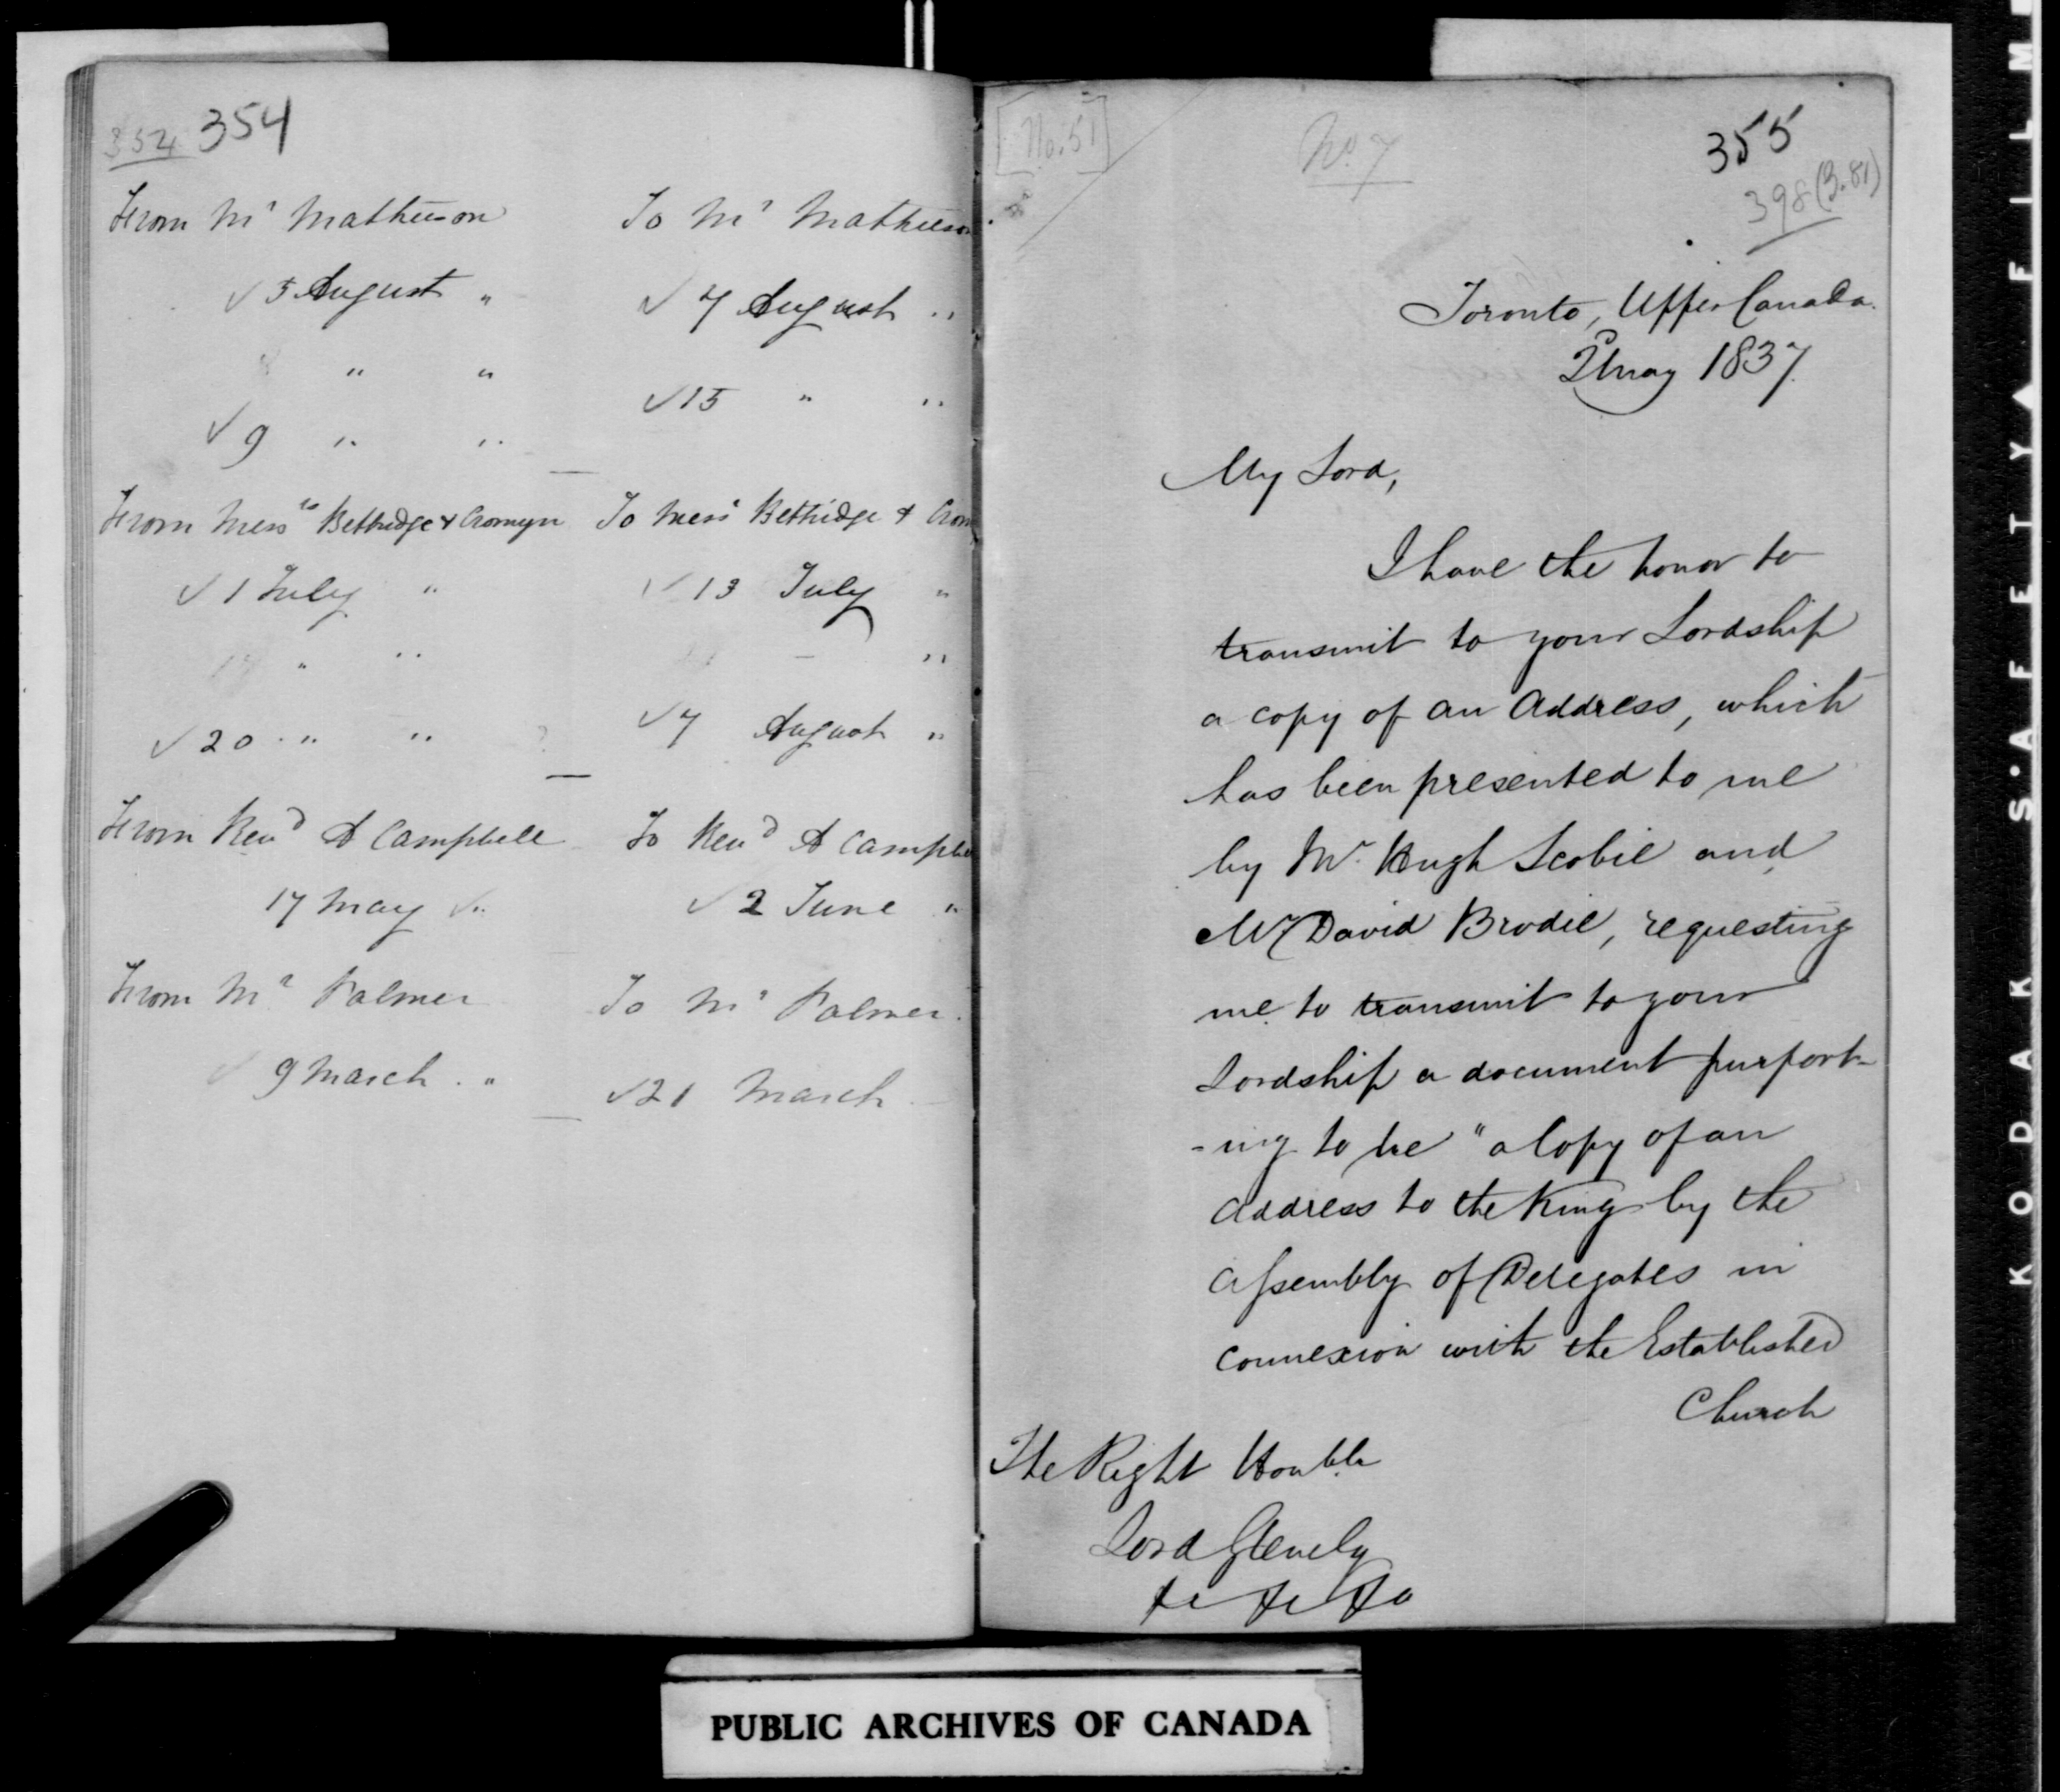 352 354
From Mr Mathieson
✓ 5 August "
" "
✓ 9 " "
From Messrs Bethridge & Cronyn
✓ 1 July "
" "
✓ 20 " "
From Revd A Campbell
17 May ✓ "
From Mr Palmer
9 March . "
To Mr Mathieson
✓ 7 August "
✓ 15 " "
To Messrs Bethridge & Cron
✓ 13 July "
— "
✓ 7 August "
To Revd A Campbe
✓ 2 June "
To Mr Palmer.
✓ 21 March
[No. 51]
No 7
355
398 (3.81)
Toronto, Upper Canada.
May 1837.
My Lord,
I have the honor to
transmit to your Lordship
a copy of an Address, which
has been presented to me
by Mr. Hugh Scobie and
Mr David Brodie, requesting
me to transmit to your
Lordship a document purport-
-ing to be "a Copy of an
Address to the King by the
Assembly of Delegates in
connexion with the Established
Church
The Right Honble
Lord Glenelg
&c &c &c
PUBLIC ARCHIVES OF CANADA
KODAK S·AFETY▲FILM